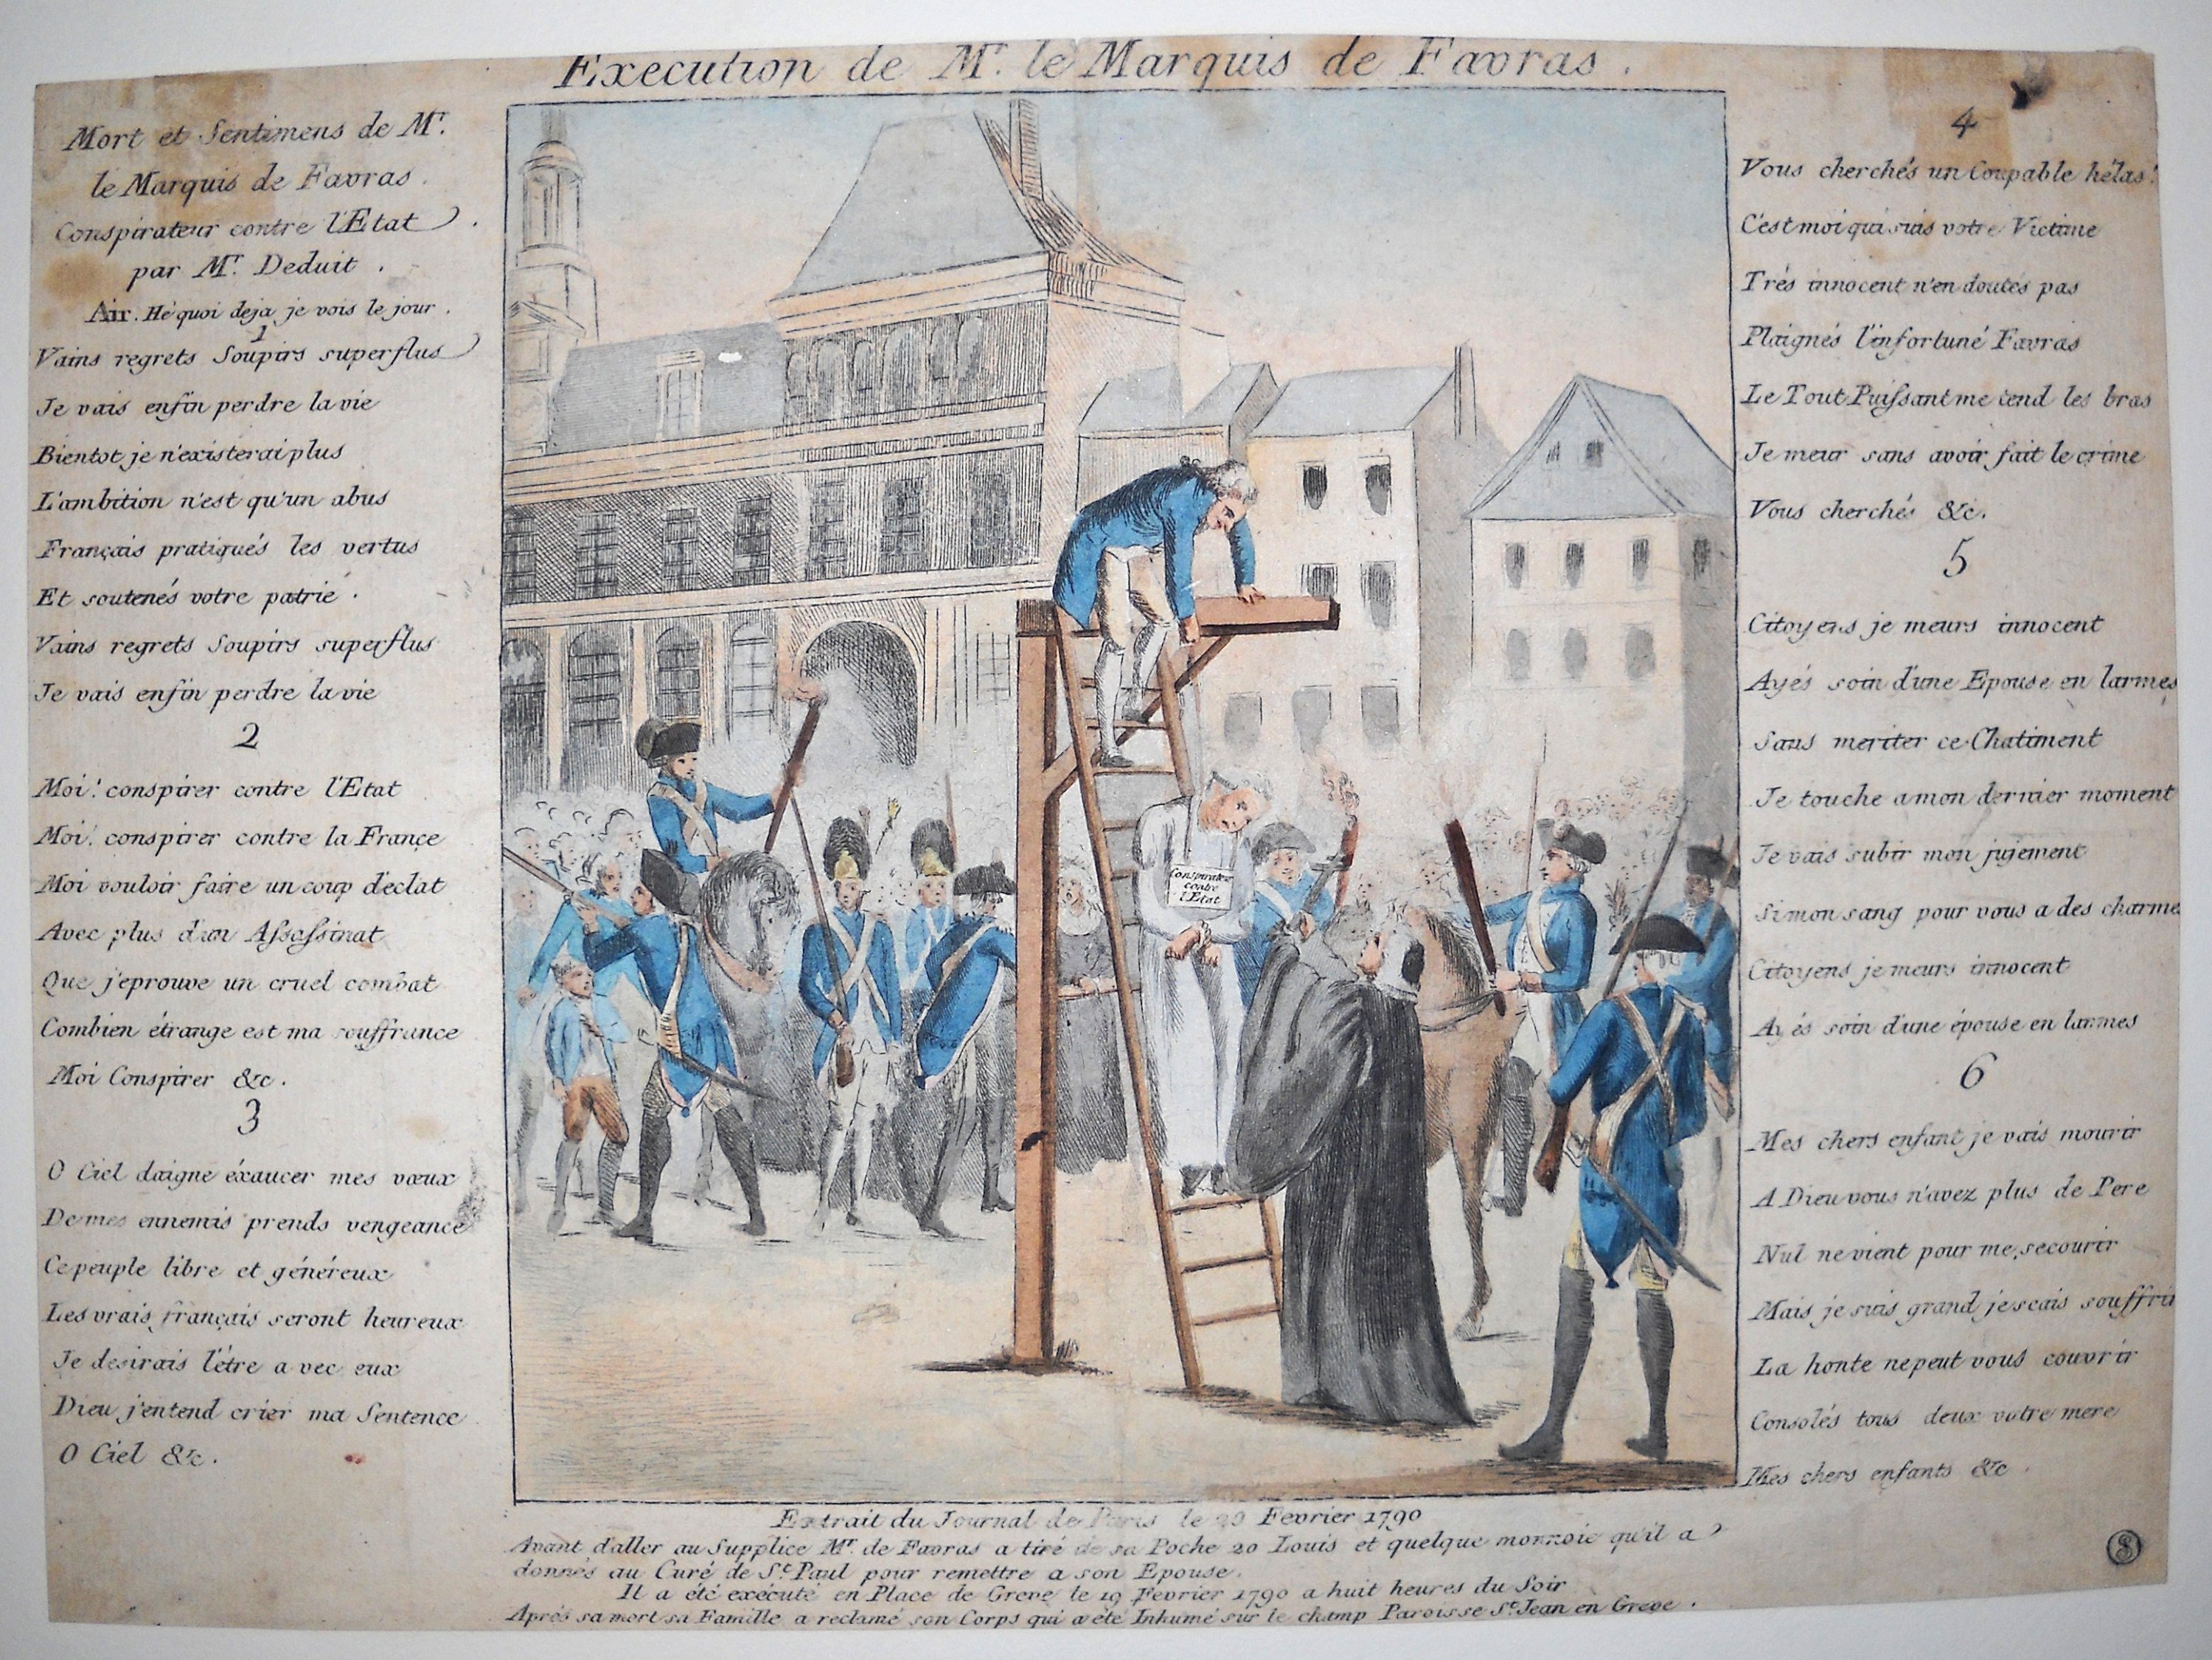 Execution de Mr. le Marquis de Favras.
Mort et Sentimens de Mr.
le Marquis de Favras.
Conspirateur contre l'Etat.
par Mr. Deduit.
Air. Hé quoi deja je vois le jour.
1
Vains regrets Soupirs superflus
Je vais enfin perdre la vie
Bientot je n'existerai plus
L'ambition n'est qu'un abus
Français pratiqués les vertus
Et soutenés votre patrie.
Vains regrets Soupirs superflus
Je vais enfin perdre la vie
2
Moi! conspirer contre l'Etat
Moi! conspirer contre la Françe
Moi vouloir faire un coup d'éclat
Avec plus d'un Assassinat
Que j'eprouve un cruel combat
Combien étrange est ma souffrance
Moi Conspirer &c.
3
O Ciel daigne éxaucer mes vœux
De mes ennemis prends vengeance
Ce peuple libre et généreux
Les vrais français seront heureux
Je desirais l'être a vec eux
Dieu j'entend crier ma Sentence
O Ciel &c.
Conspirateur
contre
l'Etat
4
Vous cherchés un Coupable hélas!
C'est moi qui suis votre Victime
Trés innocent n'en doutés pas
Plaignés l'infortuné Favras
Le Tout Puissant me tend les bras
Je meur sans avoir fait le crime
Vous cherchés &c.
5
Citoyens je meurs innocent
Ayés soin d'une Epouse en larmes
Sans meriter ce Chatiment
Je touche a mon dernier moment
Je vais subir mon jujement
Si mon sang pour vous a des charmes
Citoyens je meurs innocent
Ayés soin d'une épouse en larmes
6
Mes chers enfant je vais mourir
A Dieu vous n'avez plus de Pere
Nul ne vient pour me secourir
Mais je suis grand je scais souffrir
La honte ne peut vous couvrir
Consolés tous deux votre mere
Mes chers enfants &c.
Extrait du Journal de Paris le 20 Fevrier 1790
Avant d'aller au Supplice Mr. de Favras a tiré de sa Poche 20 Louis et quelque monnoie qu'il a
donnés au Curé de St. Paul pour remettre a son Epouse.
Il a été exécuté en Place de Greve le 19 Fevrier 1790 a huit heures du Soir
Aprés sa mort sa Famille a reclamé son Corps qui a été Inhumé sur le champ Paroisse St. Jean en Greve.